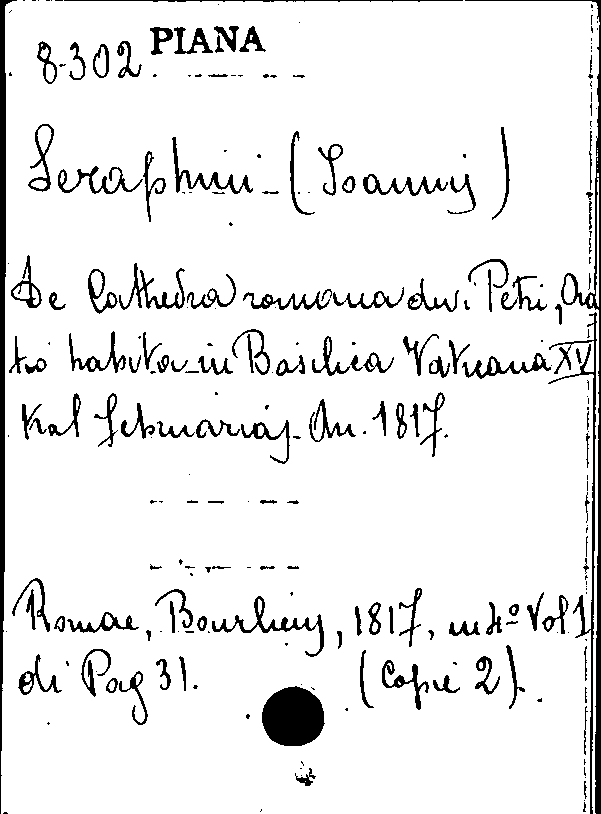 PIANA
8-302
Seraphini (Ioannis)
De Cathedra romana divi Petri, Ora
tio habita in Basilica Vaticana XV
Kal Februarias An. 1817.
Romae, Bourlieus, 1817, in 4º Vol 1
di Pag 31. (Copie 2).